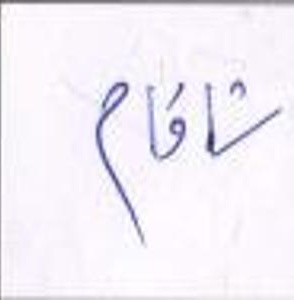 شافام